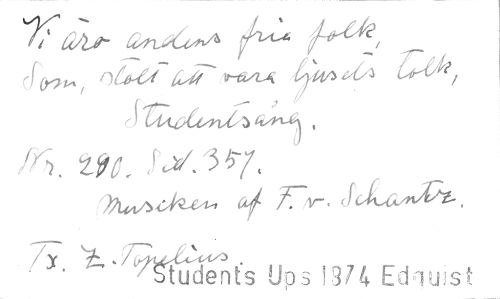 Vi äro andens fria folk,
Som, stolt att vara ljusets tolk,
Studentsång.
Nr. 290. Sid. 357.
Musiken af F. v. Schantz.
Tx. Z. Topelius.
Students Ups 1874 Edquist